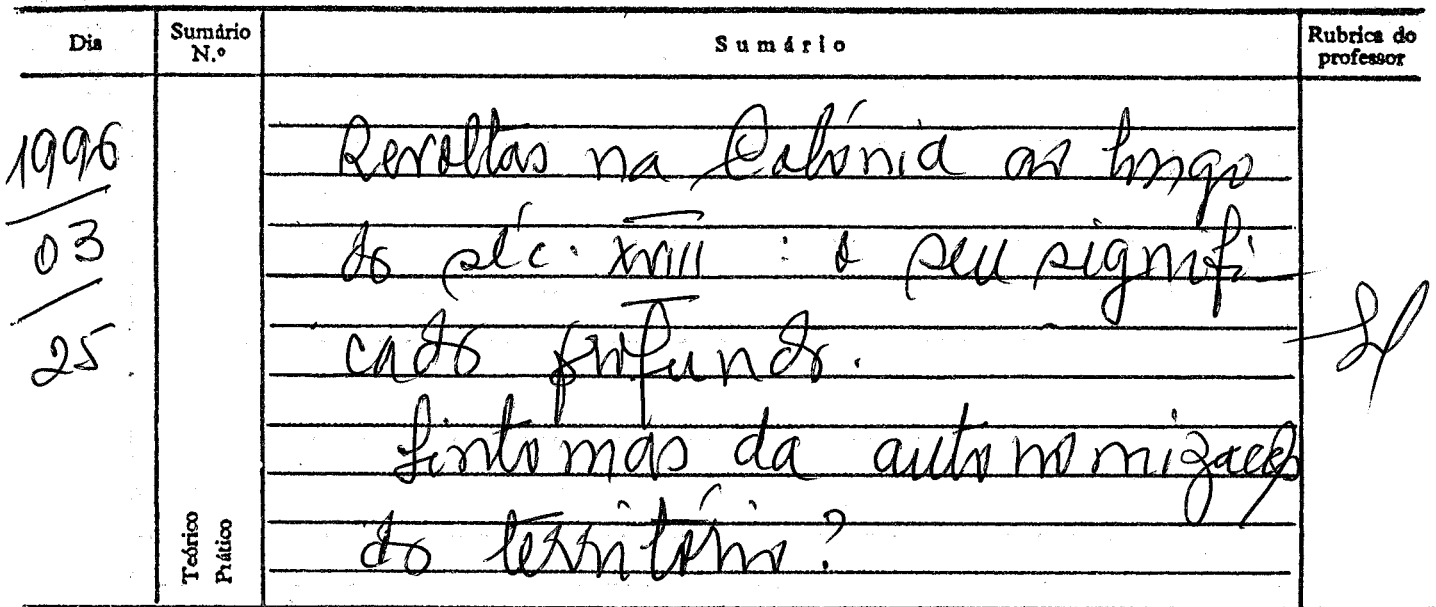 Dia
Sumário N.º
Sumário
Rubrica do professor
1996
03
25.
Revoltas na Colónia ao longo
do séc. XVIII : o seu signifi-
cado profundo.
Sintomas da autonomização
do território?
Teórico
Prático